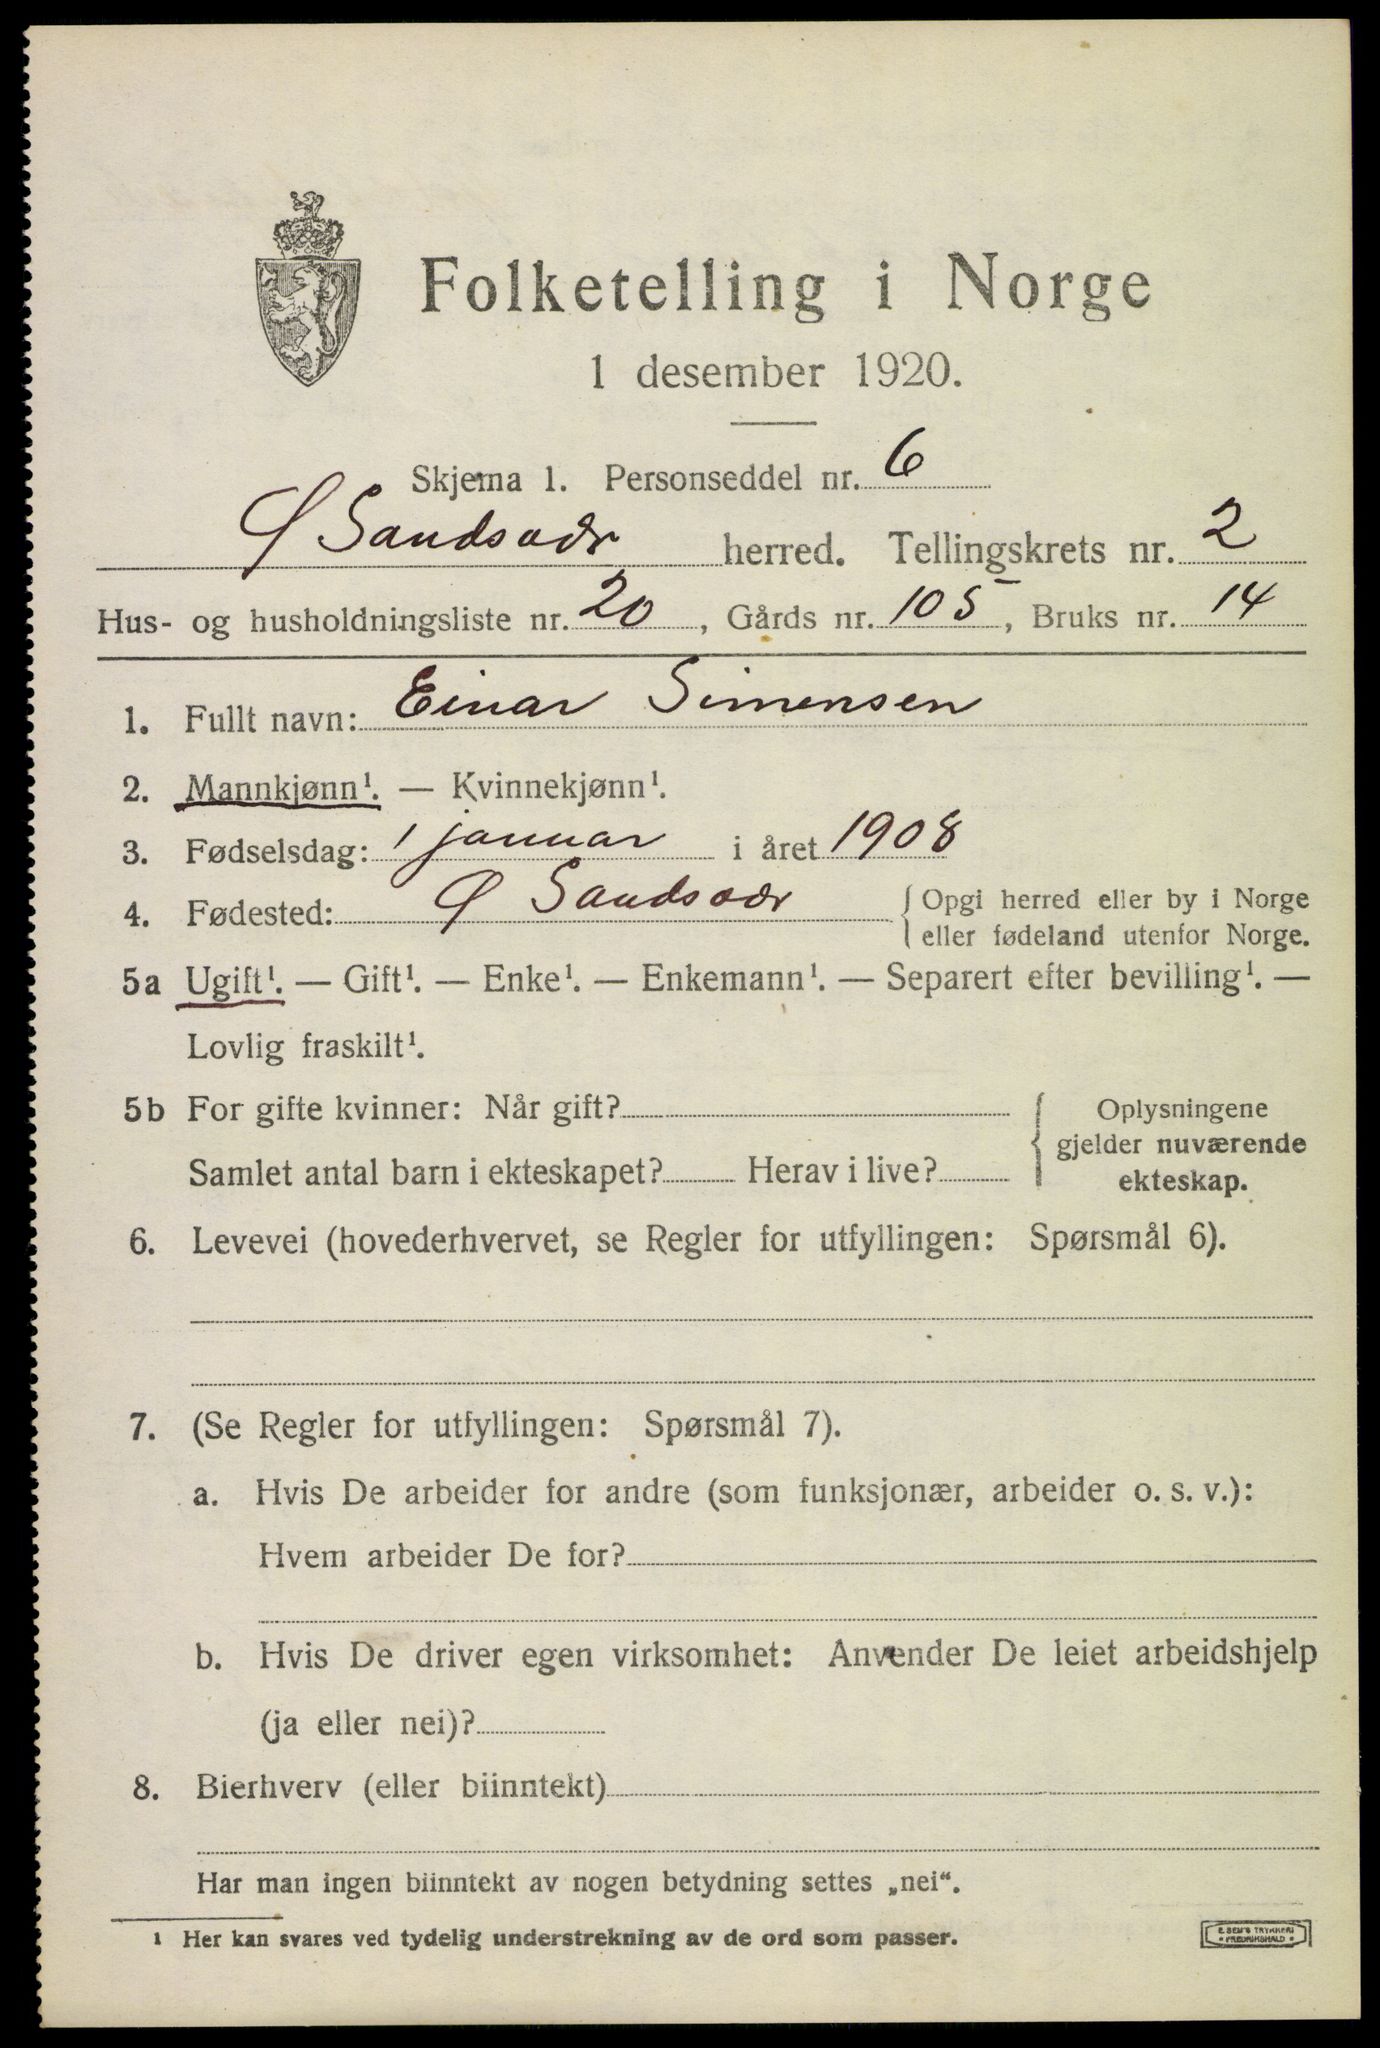 Folketelling i Norge
1 desember 1920.
Skjema 1. Personseddel nr. 6
Ø Sandsvær herred. Tellingskrets nr. 2
Hus- og husholdningsliste nr. 20, Gårds nr. 105, Bruks nr. 14
1. Fullt navn: Einar Simensen
2. Mannkjønn¹. — Kvinnekjønn¹.
3. Fødselsdag: 1 januar i året 1908
4. Fødested: Ø Sandsvær { Opgi herred eller by i Norge
eller fødeland utenfor Norge.
5a Ugift¹. — Gift¹. — Enke¹. — Enkemann¹. — Separert efter bevilling¹. —
Lovlig fraskilt¹.
5b For gifte kvinner: Når gift? { Oplysningene
gjelder nuværende
Samlet antal barn i ekteskapet? Herav i live? ekteskap.
6. Levevei (hovederhvervet, se Regler for utfyllingen: Spørsmål 6).
7. (Se Regler for utfyllingen: Spørsmål 7).
a. Hvis De arbeider for andre (som funksjonær, arbeider o. s. v.):
Hvem arbeider De for?
b. Hvis De driver egen virksomhet: Anvender De leiet arbeidshjelp
(ja eller nei)?
8. Bierhverv (eller biinntekt)
Har man ingen biinntekt av nogen betydning settes „nei“.
1 Her kan svares ved tydelig understrekning av de ord som passer.
E. SEM'S TRYKKERI
• FREDRIKSHALD •